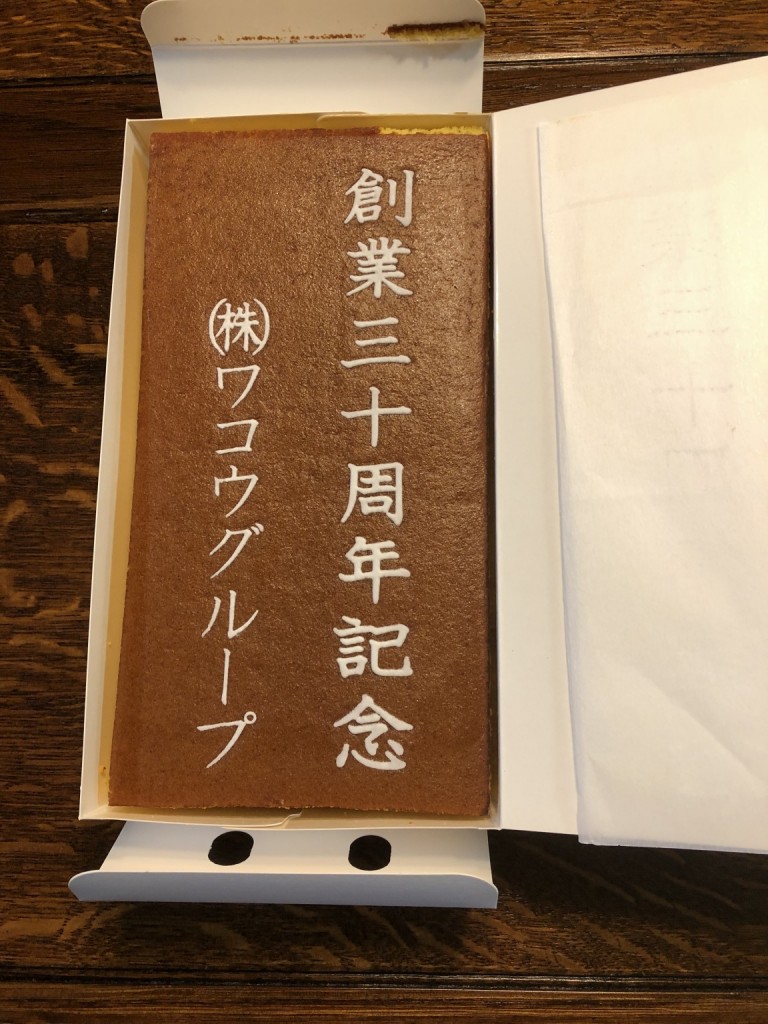 創業三十周年記念
㈱ワコウグループ